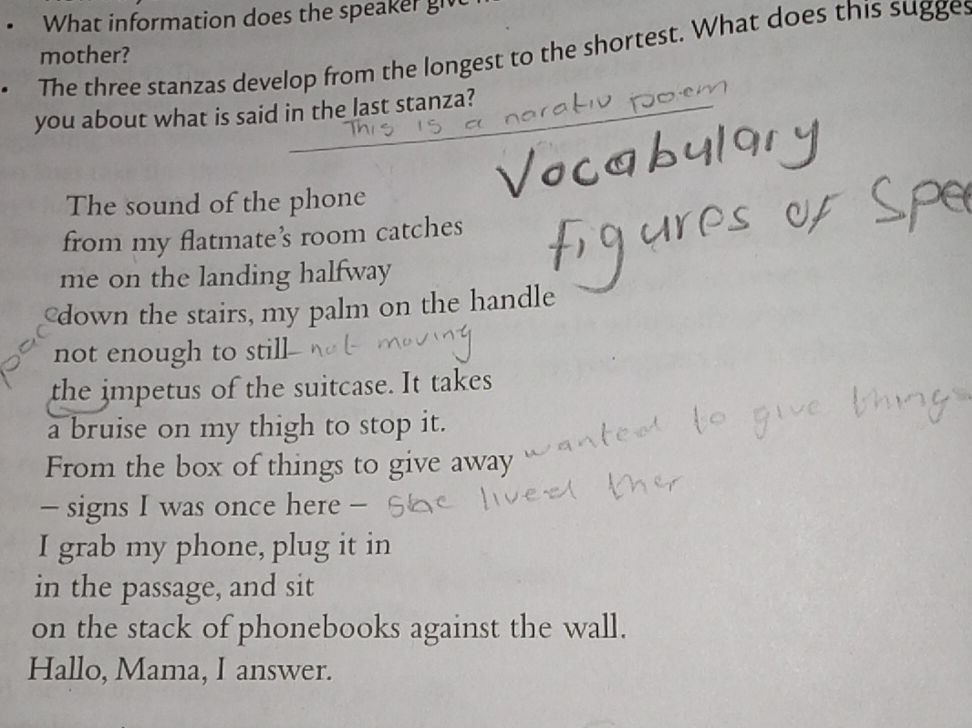 • What information does the speaker
mother?
• The three stanzas develop from the longest to the shortest. What does this sugges
you about what is said in the last stanza?
This is a narativ poem
Vocabulary
Figures of Spee
The sound of the phone
from my flatmate's room catches
me on the landing halfway
down the stairs, my palm on the handle
not enough to still not moving
the impetus of the suitcase. It takes
a bruise on my thigh to stop it.
From the box of things to give away wanted to give things
– signs I was once here – She lived ther
I grab my phone, plug it in
in the passage, and sit
on the stack of phonebooks against the wall.
Hallo, Mama, I answer.